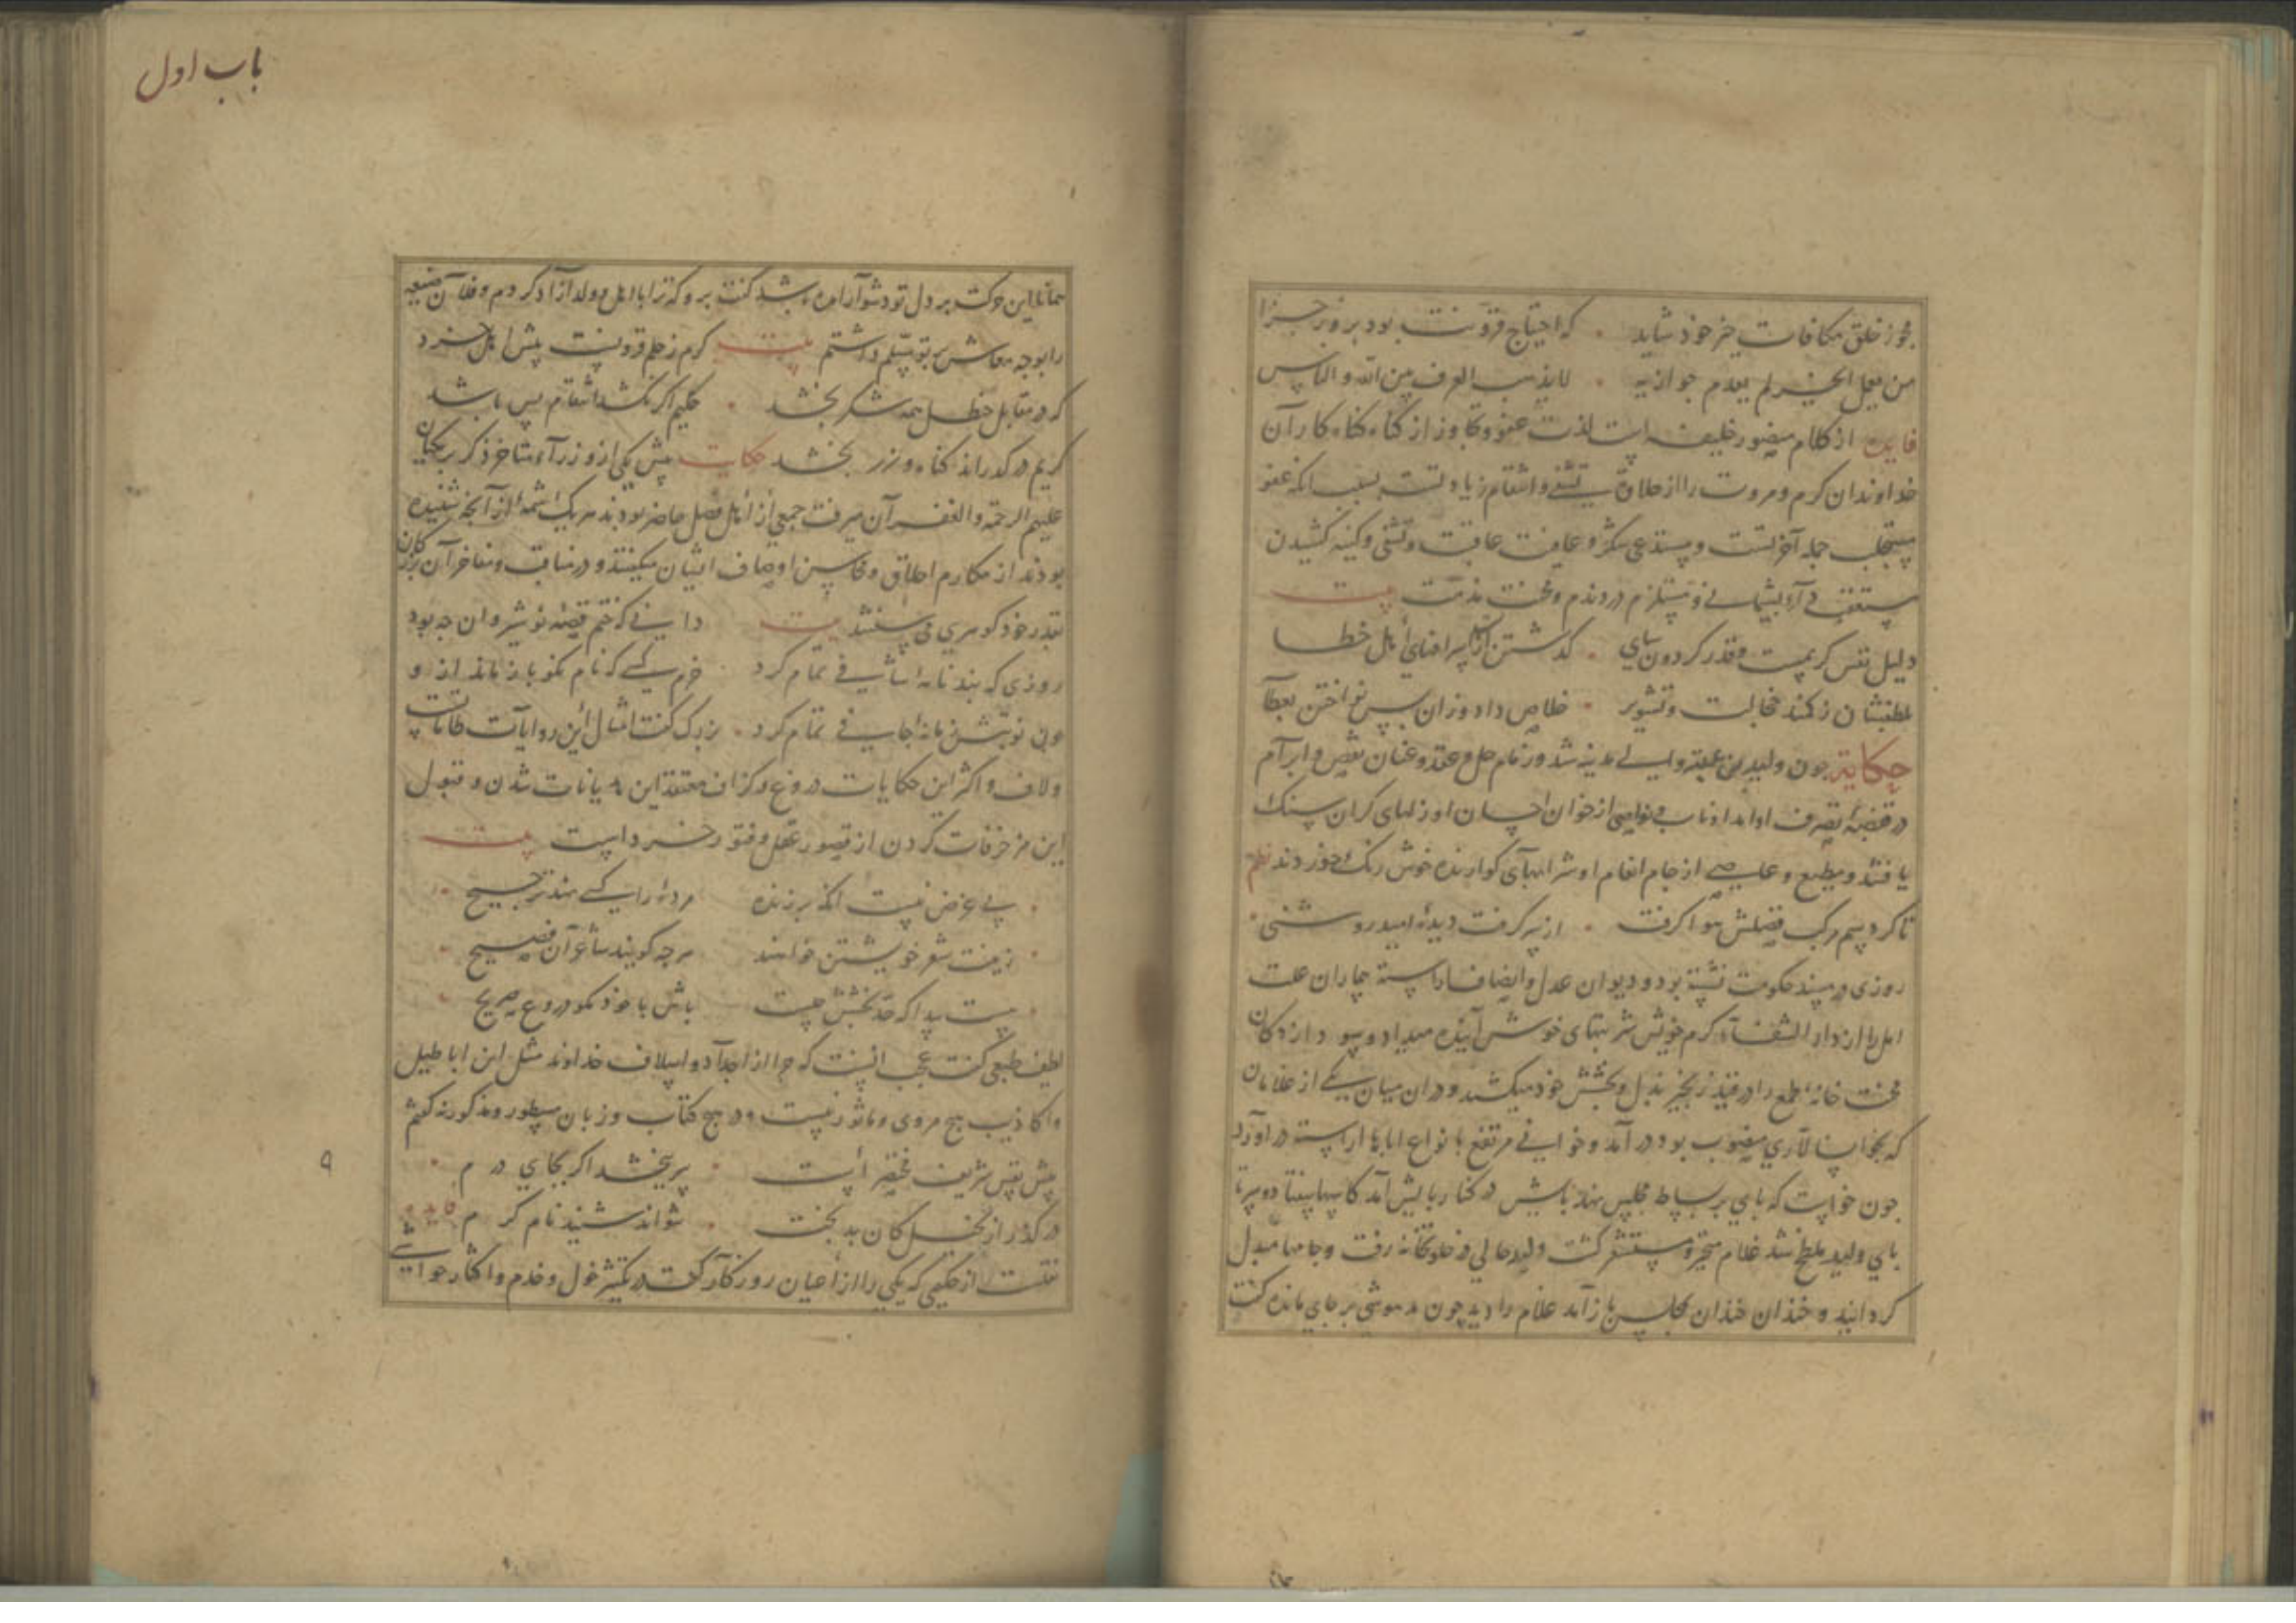 مجوز خلق مکافات خیر خود شاید که احتیاج فزونت بود بروز جزا
من یفعل الخیر لم یعدم جوازیه لا یذهب العرف بین الله و الناس
فایده از کلام منصور خلیفه است لذت عفو و تجاوز از کناه کناه کار آن
خداوندان کرم و مروت را از حلاوت تشفی و انتقام زیادتست بسبب انکه عفو
مستجلب حمد آخرتست و مستدعی شکر و عافیت عاقبت و تشفی و کینه کشیدن
مستعقب پشیمانی و مستلزم درد ندم و محنت مذمت بیت
دلیل نفس کریمست و قدر کردون سای کذشتن از سر ایذای أهل خطا
بلطفشان ز کمند خجالت و تشویر خلاص داد وزان پس نواختن بعطا
حکایة جون ولید بن عقبه والی مدینه شد و زمام حل و عقد و عنان نقض و ابرام
در قبضه تصرف او امد اذناب و نواصی از خوان احسان او زلهای کران سنک
یافتند و مطیع و عاصی از جام انعام او شرابهای کوارنده خوش رنک خوردند نظم
تا کرد سم مرکب فضلش هوا کرفت از سر کرفت دیده امید روشنی
روزی در مسند حکومت نشسته بود و دیوان عدل و انصاف اراسته بیماران علت
امل را از دار الشفاء کرم خویش شربتهای خوش آینده میداد و
محنت خانه طمع را در قید زنجیر بذل و بخشش خود میکشید و دران میان یکی از غلامان
که بخوانسالاری منصوب بود در آمد و خوانی مرتفع بانواع اباها اراسته در اورد
جون خواست که بای بر بساط مجلس نهد بایش در کنار آمد کاسها بیفتاد و سر تا
بای ولید ملطخ شد غلام متحیر و مستشعر کشت ولید حالی در خلوتخانه رفت و جامها مبدل
کردانید و خندان خندان بمجلس باز آمد غلام را دید چون مدهوشی بر جای مانده کفت
باب اول
همانا این حرکت بر دل تو دشوار آمده باشد کفت برو که ترا با اهل و ولد آزاد کردم و فلان ضیعه
را بوجه معاش بر تو مسلم داشتم بیت کرم ز حلم فزونست پیش اهل خرد
که در مقابل حنظل همه شکر بخشد حکیم اکر نکشد انتقام بس باشد
کریم در کدراند کناه و زر بخشد حکایت پیش یکی از وزراء متاخر ذکر برمکیان
علیهم الرحمة و الغفران میرفت جمعی از أهل فضل حاضر بودند هر یک شمه از آنجه شنیده
بودند از مکارم اخلاق و محاسن اوصاف ایشان میکفتند و در مناقب و مفاخر آن بزرکان
بقدر خود کوهری می سفتند بیت دانی که ختم قصه نوشیروان جه بود
روزی که بند نامه اساسی تمام کرد خرم کسی که نام نکو باز ماند ازو
جون نوبتش زمانه اجابی تمام کرد بزرک کفت امثال این روایات طامات
و لاف و اکثر این حکایات دروغ و کزاف معتقد این هذیانات شدن و قبول
این مزخرفات کردن از قصور عقل و فتور خرد است بیت
بی غرض نیست انکه بر زنده مرده را کسی نهد ترجیح
زینت شعر خویشتن خواهند هرجه کویند شاعرآن فصیح
نیست بیدا که حد بخشش چیست باش با خود مکو دروغ صریح
لطیف طبعی کفت عجب انست که جرا از اجداد و اسلاف خداوند مثل این اباطیل
و اکاذیب هیج مروی و ماثور نیست و در هیج کتاب و زبان مسطور و مذکور نه کفتم
پیش نفس شریف مختصر أست سر ببخشد اکر بجای درم
در کذر از بخیل کان بدبخت نتواند شنید نام کرم فایده
نقلست از حکیمی که یکی را از اعیان روزکار کفت در تکثیر خول و خدم و اکثار حواشی
۹